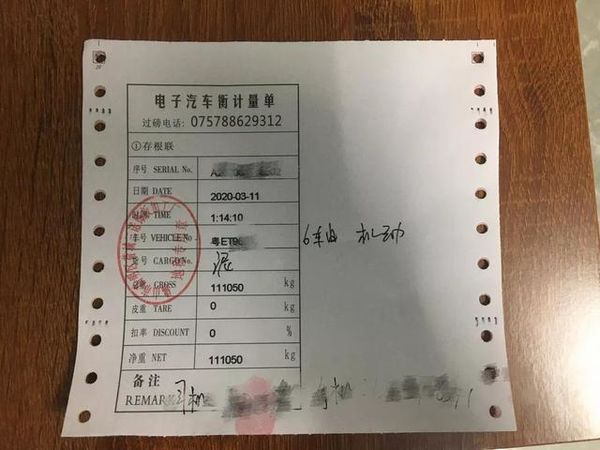 电子汽车衡计量单
过磅电话: 075788629312
①存根联
序号 SERIAL No.
日期 DATE 2020-03-11
时间 TIME 1:14:10
车号 VEHICLE No. 粤ET9
货号 CARGO No. 泥
总重 GROSS 111050 kg
皮重 TARE 0 kg
扣率 DISCOUNT 0 %
净重 NET 111050 kg
6车由 机动
备注
REMARK 司机